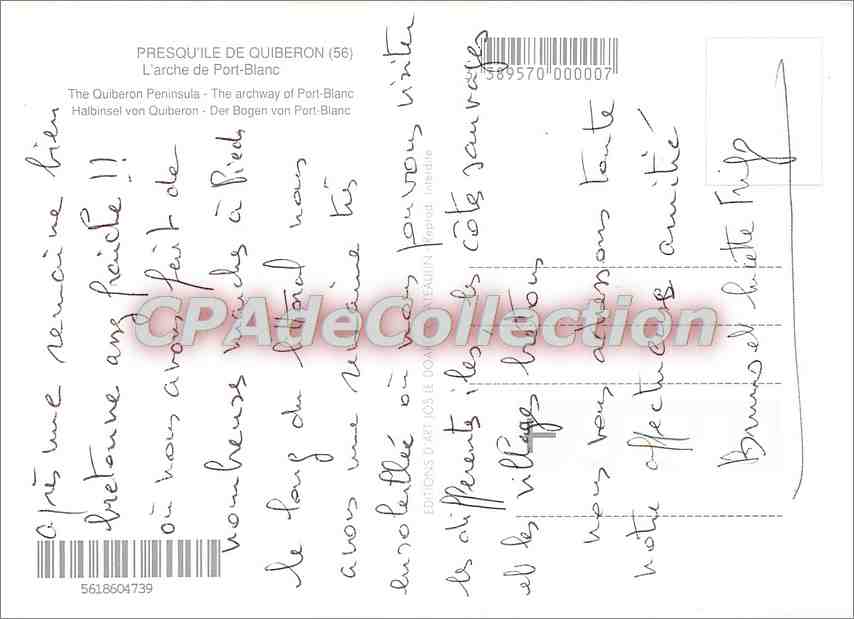 PRESQU'ILE DE QUIBERON (56)
L'arche de Port-Blanc
The Quiberon Peninsula - The archway of Port-Blanc
Halbinsel von Quiberon - Der Bogen von Port-Blanc
589570 000007
après une semaine bien
bretonne assez fraîche !!
où nous avons fait de
nombreuses marches à Pieds
le long du littoral nous
avons une semaine très
ensoleillée où nous pouvons visiter
les différentes îles, les côtes sauvages
et les villages bretons
nous vous adressons toute
notre affectueuse amitié
Bruno et
EDITIONS D'ART JOS LE DOARE CHATEAULIN Reprod. Interdite
CPAdeCollection
5618604739